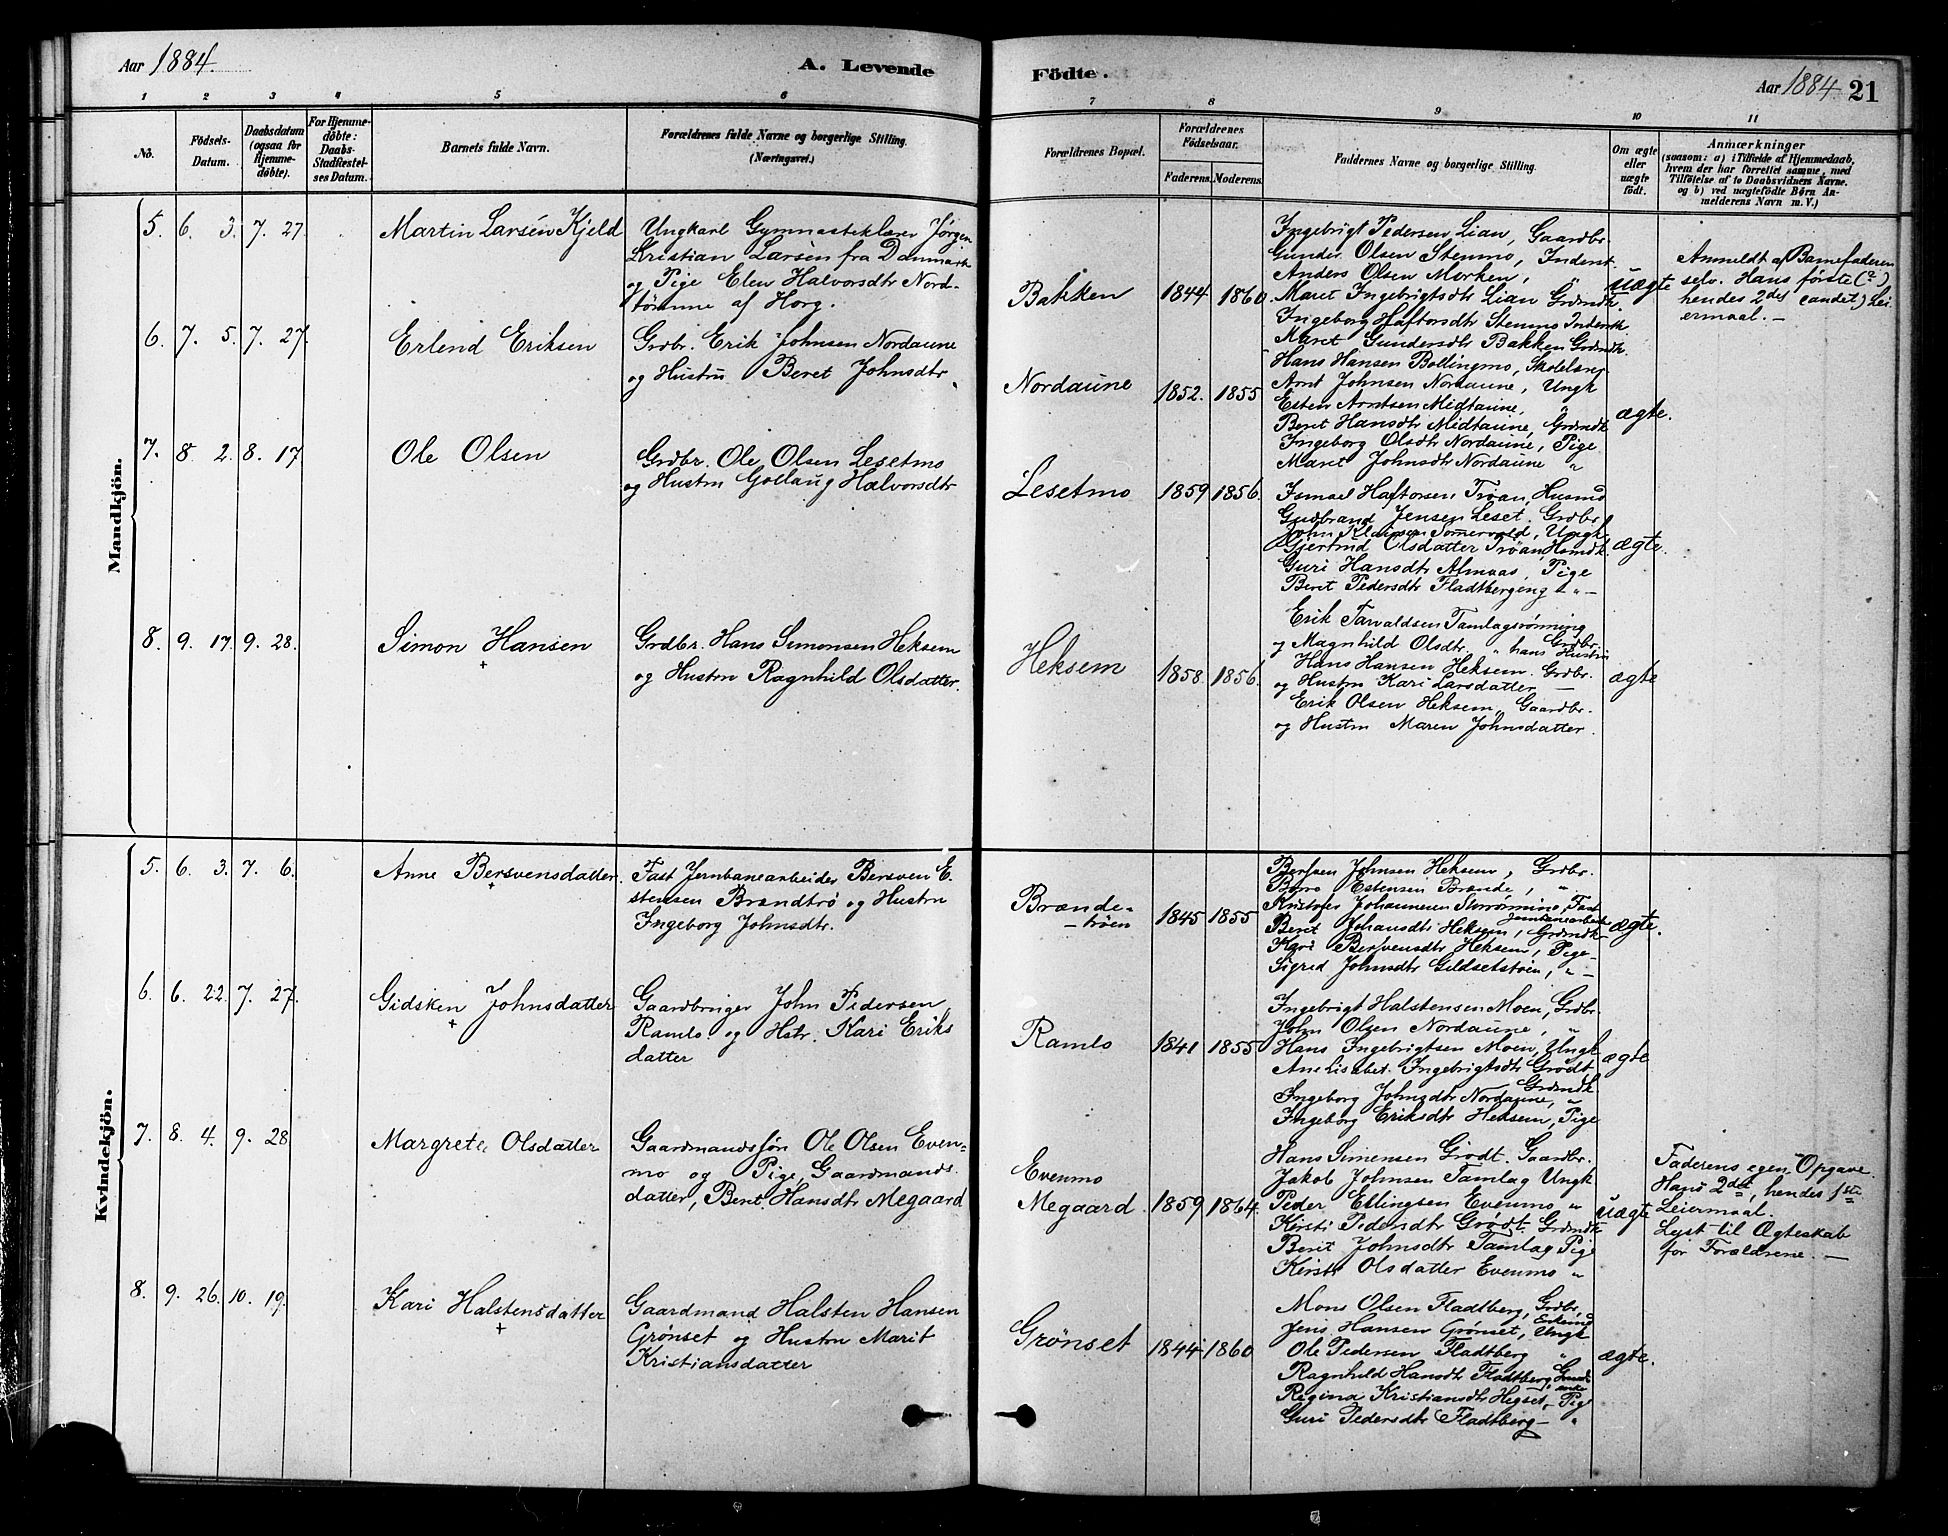 Aar 1884.
A. Levende
1 2 3 4 5 6
No.
Födsels-
Datum.
Daabsdatum
(ogsaa for
Hjemme-
døbte).
For Hjemme-
døbte:
Daabs-
Stadfæstel-
ses Datum.
Barnets fulde Navn.
Forældrenes fulde Navne og borgerlige Stilling.
(Næringsvei.)
Mandkjön.
5. 6. 3. 7. 27.
Martin Larsen Kjeld
Ungkarl Gymnastiklærer Jørgen
Kristian Larsen fra Danmark
og Pige Elen Halvorsdtr Nord-
tømme af Horg.
6. 7. 5. 7. 27.
Erlend Eriksen
Grdbr. Erik Johnsen Nordaune
og Hustru Beret Johnsdtr
7. 8. 2. 8. 17
Ole Olsen
Grdbr. Ole Olsen Lesetmo
og Hustru Gollaug Halvorsdtr
8. 9. 17. 9. 28.
Simon Hansen
+
Grdbr. Hans Simonsen Heksem
og Hustru Ragnhild Olsdatter.
Kvindekjön.
5. 6. 3. 7. 6.
Anne Bersvensdatter.
+
Fast Jernbanearbeider Bersven E-
stensen Brandtrø og Hustru
Ingeborg Johnsdtr.
6. 6. 22. 7. 27.
Gidsken Johnsdatter
+
Gaardbruger John Pedersen
Ramlo og Hstr. Kari Eriks
datter
7. 8. 4. 9. 28
Margrete Olsdatter
Gaardmandssøn Ole Olsen Even-
mo og Pige, Gaardmands
datter, Berit Hansdtr Megaard
8. 9. 26. 10. 19.
Kari Halstensdatter
+
Gaardmand Halsten Hansen
Grønset og Hustru Marit
Kristiansdatter
Födte.
Aar 1884. 21
7 8 9 10 11
Forældrenes Bopæl.
Forældrenes
Födselsaar.
Faderens. Moderens.
Faddernes Navne og borgerlige Stilling.
Om ægte
eller
uægte
født.
Anmærkninger
(saasom: a) i Tilfælde af Hjemmedaab,
hvem der har forrettet samme, med
Tilføielse af to Daabsvidners Navne.
og b) ved uægtefødte Børn An-
melderens Navn m. V.)
Bakken 1844 1860.
Ingebrigt Pedersen Lian, Gaardbr.
Gunder Olsen Stenmo, Inderst.
Anders Olsen Merken, "
Maret Ingebrigtsdtr Lian Grdmdk.
Ingeborg Haftorsdtr Stenmo Inderstk.
Maret Gundersdtr Bakken Grdmdk.
uægte
Anmeldt af Barnefaderen
selv. Hans første (?),
hendes 2det (andet) Lei
ermaal. —
Nordaune 1852. 1855
Hans Hansen Bollingmo, Skolelær.
Arnt Johnsen Nordaune, Ungk
Esten Arntsen Midtaune, "
Berit Hansdtr Midtaune, Grdmdk
Ingeborg Olsdtr Nordaune, Pige
Maret Johnsdtr Nordaune "
ægte.
Lesetmo 1859 1856.
Ismael Haftorsen Trøan, Husmd
Gudbrand Jensen Leset. Grdbr.
John Ungk.
Gjertrud Olsdatter Trøan Husmdk.
Guri Hansdtr Almaas, Pige
Berit Pedersdtr Fladtbergeng — " —
ægte.
Heksem 1858. 1856.
Erik Tarvaldsen Tamlagsrønning
og Magnhild Olsdtr. " hans Hustru
Grdbr.
Hans Hansen Heksem. Grdbr.
og Hustru Kari Larsdatter —
Erik Olsen Heksem, Gaardbr.
og Hustru Maren Johnsdatter.
ægte
Brænde-
— trøen 1845 1855
Johnsen Heksem, Grdbr.
Estensen Brænde, "
Kristofer Johannesen Fast
Jernbanearbeider
Beret Johansdtr Heksem, Grdmdk—
Kari Bersvensdtr Heksem, Pige—
Sigred Johnsdtr Gildsetstøen, " —
ægte.
Ramlo 1841 1855
Ingebrigt Halstensen Moen, Grdbr.
John Olsen Nordaune, "
Hans Ingebrigtsen Moen, Ungk
Anelisabet. Ingebrigtsdtr Grødt
Grdmdk
Ingeborg Johnsdtr Nordaune, "
Ingeborg Eriksdtr Heksem, Pige
ægte
Evenmo
Megaard. 1859 1864.
Hans Simensen Grødt. Gaardbr.
Jakob Johnsen Tamlag Ungk
Peder Ellingsen Evenmo "
Kirsti Pedersdtr Grødt. Grdmdk
Berit Johnsdtr Tamlag Pige
Kirsti Olsdatter Evenmo "
uægte
Faderens egen Opgave.
Hans 2det, hendes 1ste
Leiermaal.
Lyst til Ægteskab
for Forældrene. —
Grønset 1844. 1860
Mons Olsen Fladtberg, Grdbr,
Enkemd
Jens Hansen Grønset, Ungk
Ole Pedersen Fladtberg "
Ragnhild Hansdtr Fladtberg,
Regina Kristiansdtr Hegset, Pige
Guri Pedersdtr Fladtberg— "
ægte.